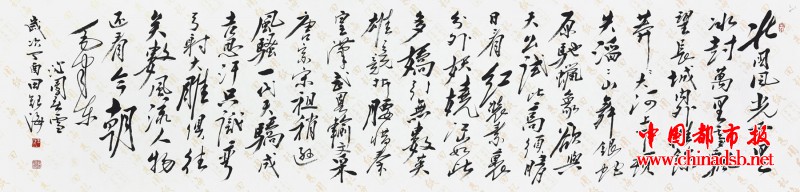 北国风光千里
冰封萬里雪飘
望長城内外惟余
莽莽大河上下顿
失滔滔山舞银蛇
原馳蜡象欲與
天公试比高须晴
日看红装素裹
分外妖娆江山如此
多嬌引無數英
雄競折腰惜秦
皇漢武略输文采
唐宗宋祖稍逊
風騷一代天驕成
吉思汗只識弯
弓射大雕俱往
矣數風流人物
还看今朝
毛泽东
沁園春雪
歲次丁酉田
中国都市报
www.chinadsb.net